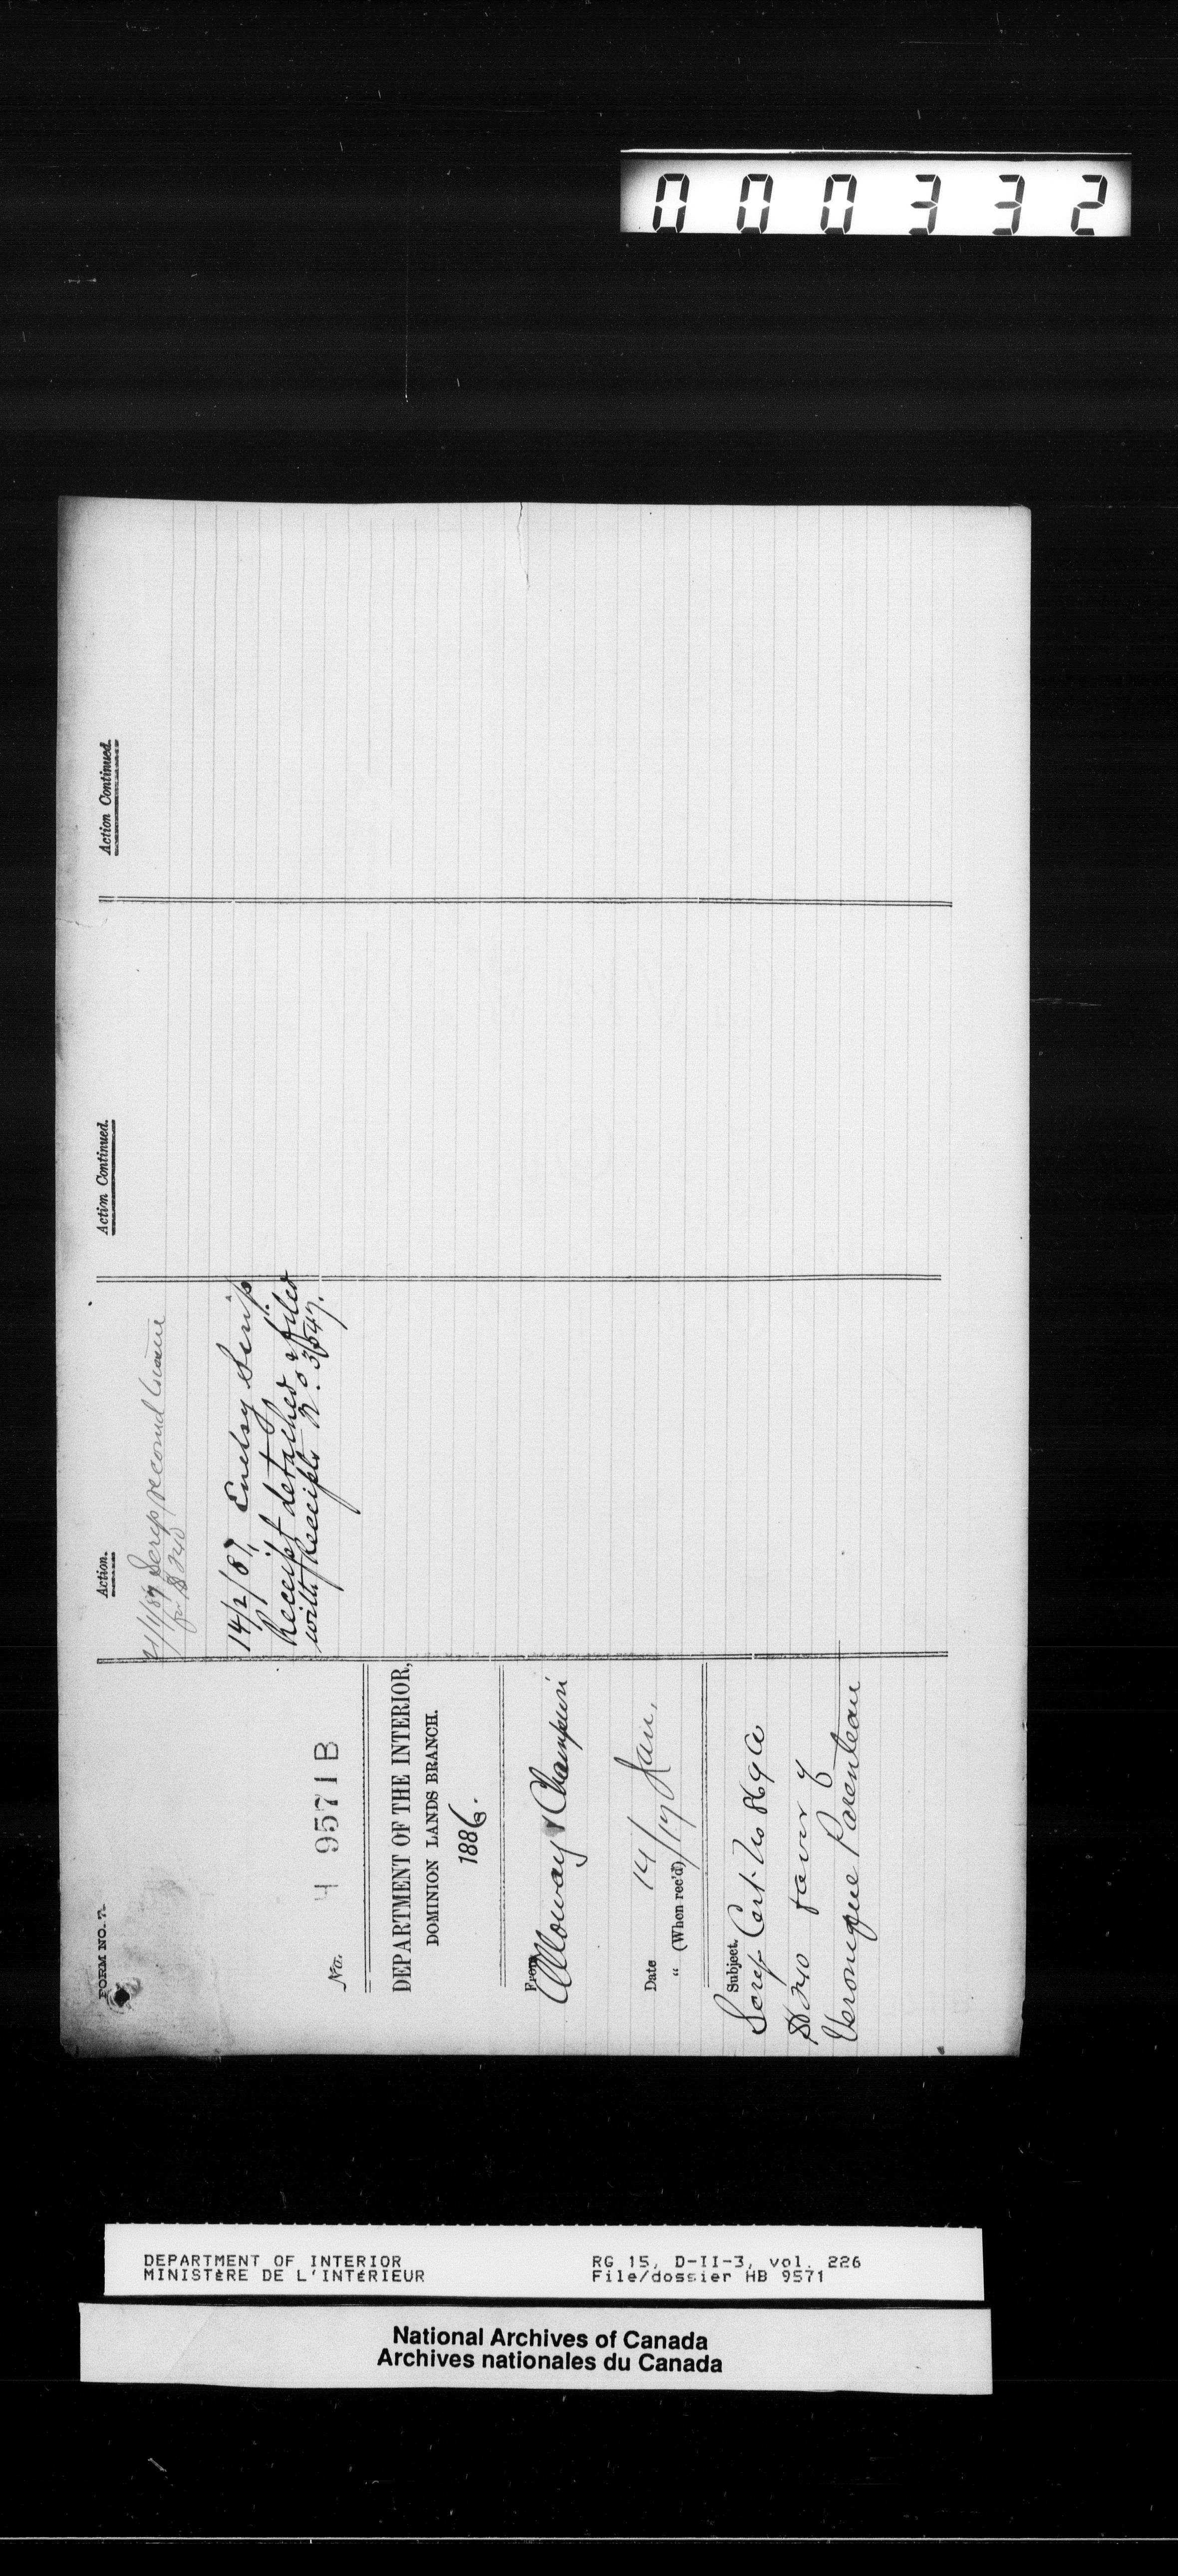 000332
FORM NO. 7.
No. H 9571 B
DEPARTMENT OF THE INTERIOR,
DOMINION LANDS BRANCH.
1886.
From
Alloway & Champion
Date 14
" (When rec'd) 17 Jan.
Subject.
Scrip Cert. No 869 A
$240 favor of
Veronique Parenteau
Action.
21/1/87 Scrip record
for $240
14/2/87, Encloy Scrip
Receipt detached & filed
with Receipts No 3547.
Action Continued.
Action Continued.
DEPARTMENT OF INTERIOR
MINISTÈRE DE L'INTÉRIEUR
RG 15, D-II-3, vol. 226
File/dossier HB 9571
National Archives of Canada
Archives nationales du Canada